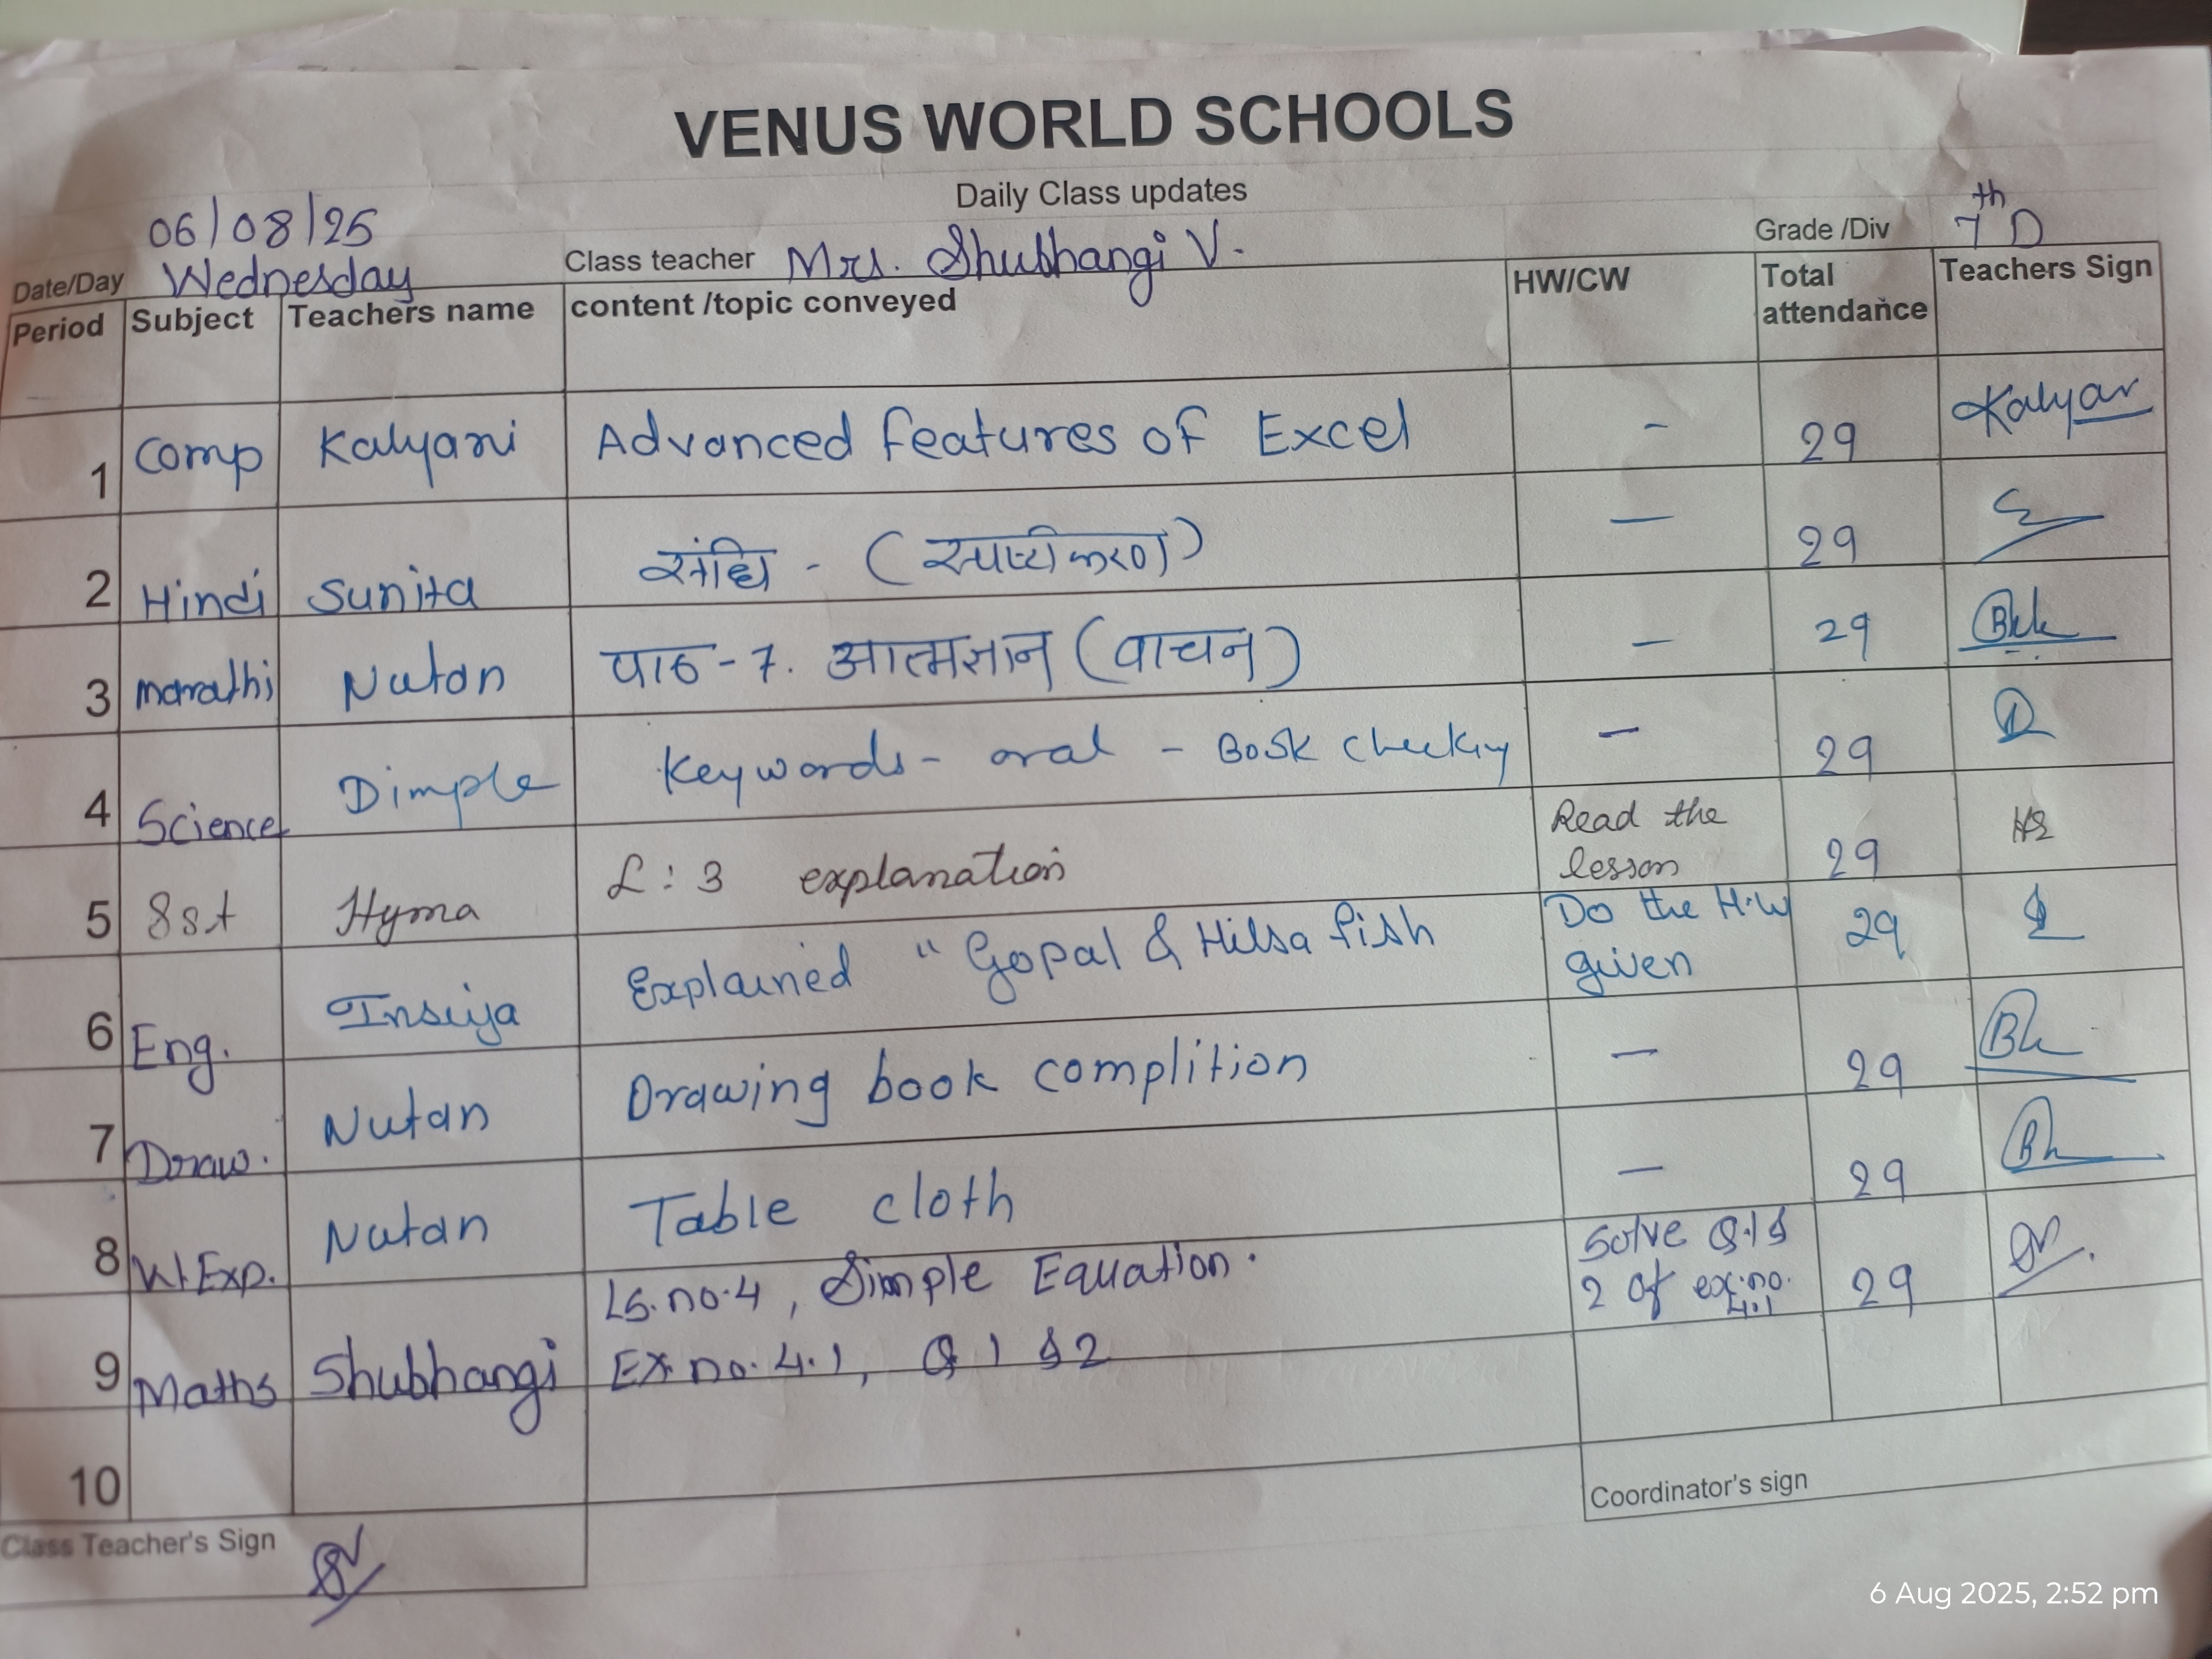 VENUS WORLD SCHOOLS
Daily Class updates
Date/Day 06/08/25 Wednesday Class teacher Mrs. Shubhangi V. Grade /Div 7th D
Period Subject Teachers name content /topic conveyed HW/CW Total attendance Teachers Sign
1 Comp Kalyani Advanced features of Excel - 29 Kalyan
2 Hindi Sunita संधि - (स्पष्टीकरण) — 29
3 Marathi Nutan पाठ - 7. आत्मज्ञान (वाचन) — 29
4 Science Dimple Keywords - oral - Book checking — 29
5 Sst Hyma L : 3 explanation Read the lesson 29
6 Eng. Insiya Explained " Gopal & Hilsa fish Do the H.W given 29
7 Draw. Nutan Drawing book complition — 29
8 W.Exp. Nutan Table cloth — 29
9 Maths Shubhangi Ls. no. 4, Simple Equation. Ex. no. 4.1, Q 1 & 2 Solve Q.1 & 2 of ex. no. 4.1 29
10
Class Teacher's Sign Coordinator's sign
6 Aug 2025, 2:52 pm